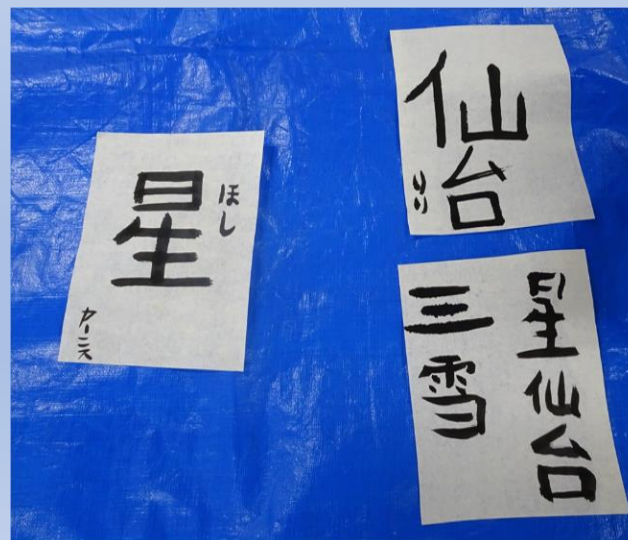 星
ほし
カーニス
仙台
リリ
星仙台
三雪